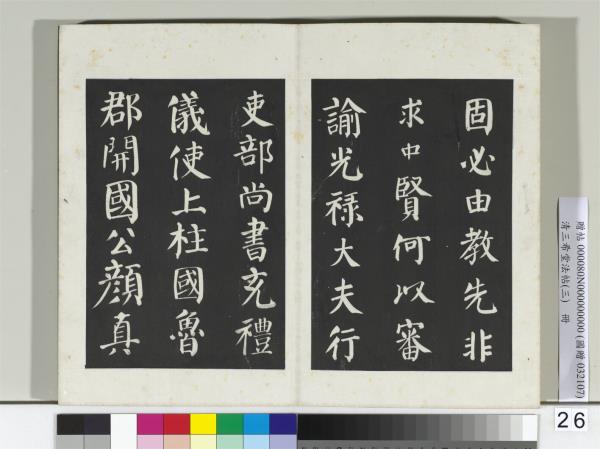 固必由教先非
求中賢何以審
諭光祿大夫行
吏部尚書充禮
儀使上柱國魯
郡開國公顏真
贈帖 000080N000000000 (圖贈 032107)
清三希堂法帖(三) 冊
26